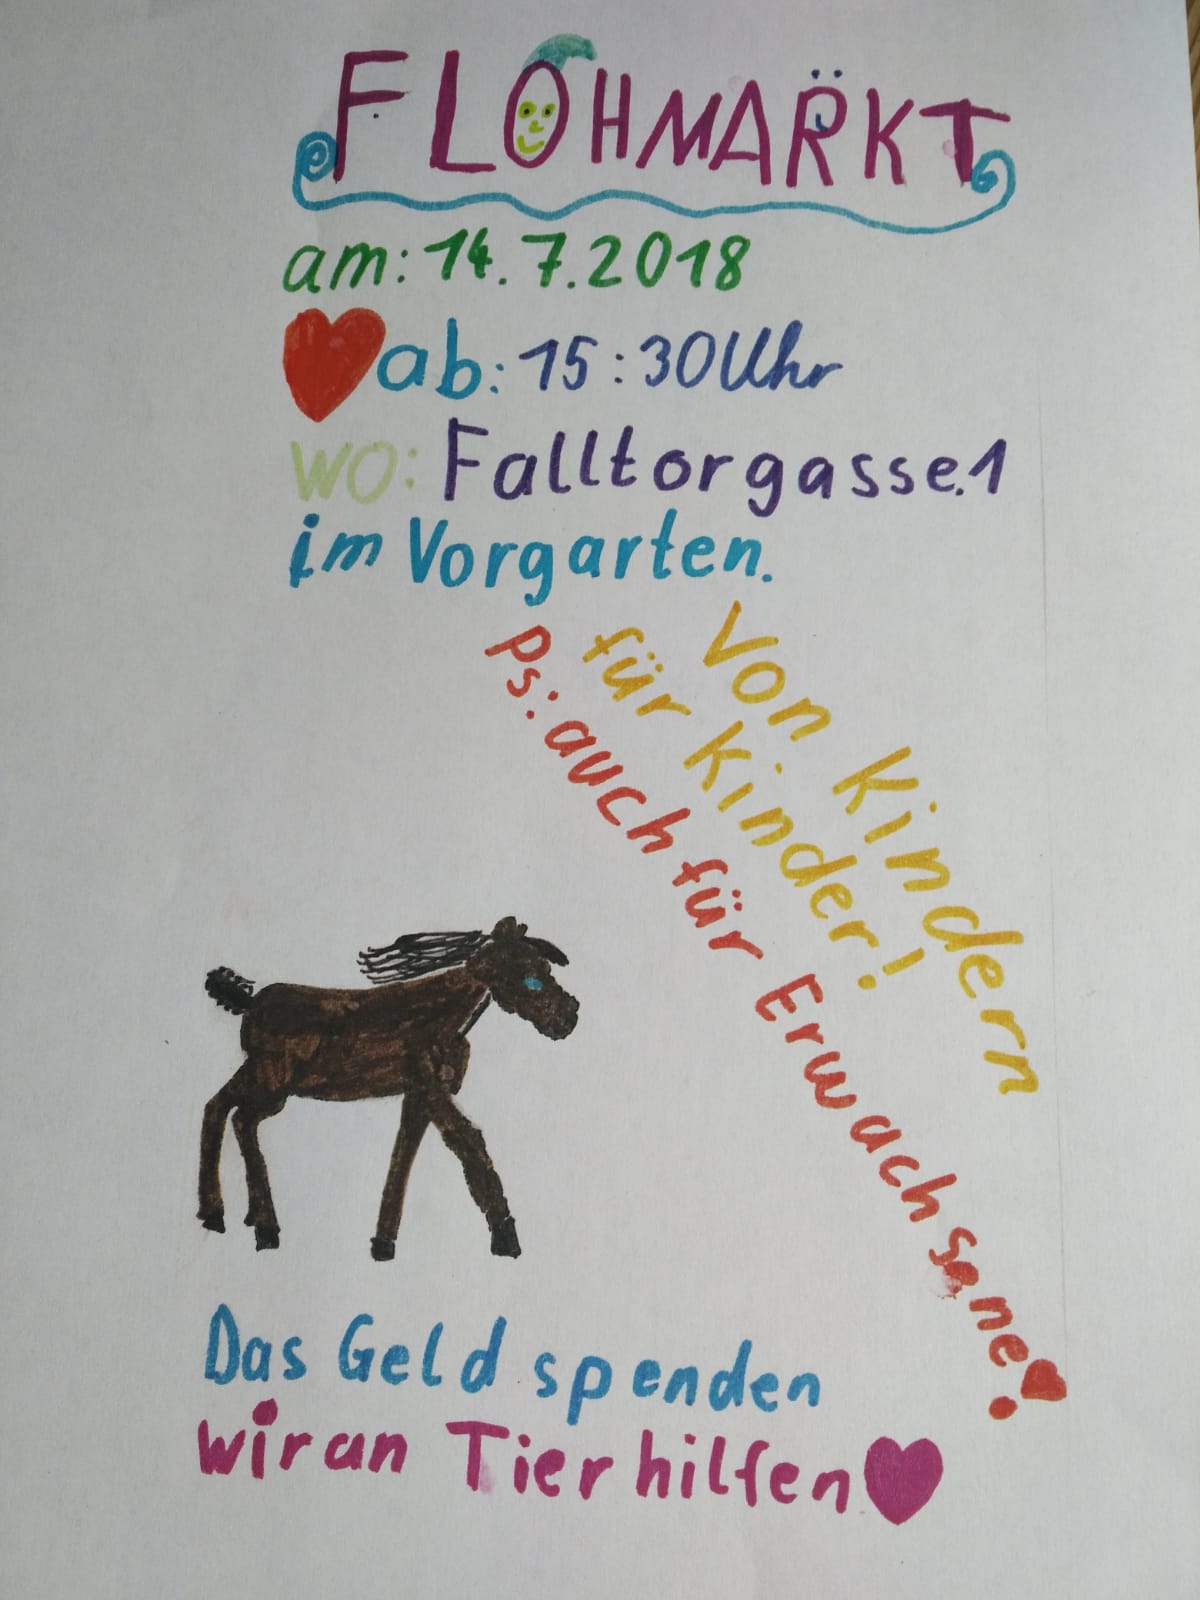 FLOHMARKT
am: 14.7.2018
ab: 15:30 Uhr
wo: Falltorgasse.1
im Vorgarten.
Von Kindern
für Kinder!
Ps: auch für Erwachsene!
Das Geld spenden
wir an Tierhilfen